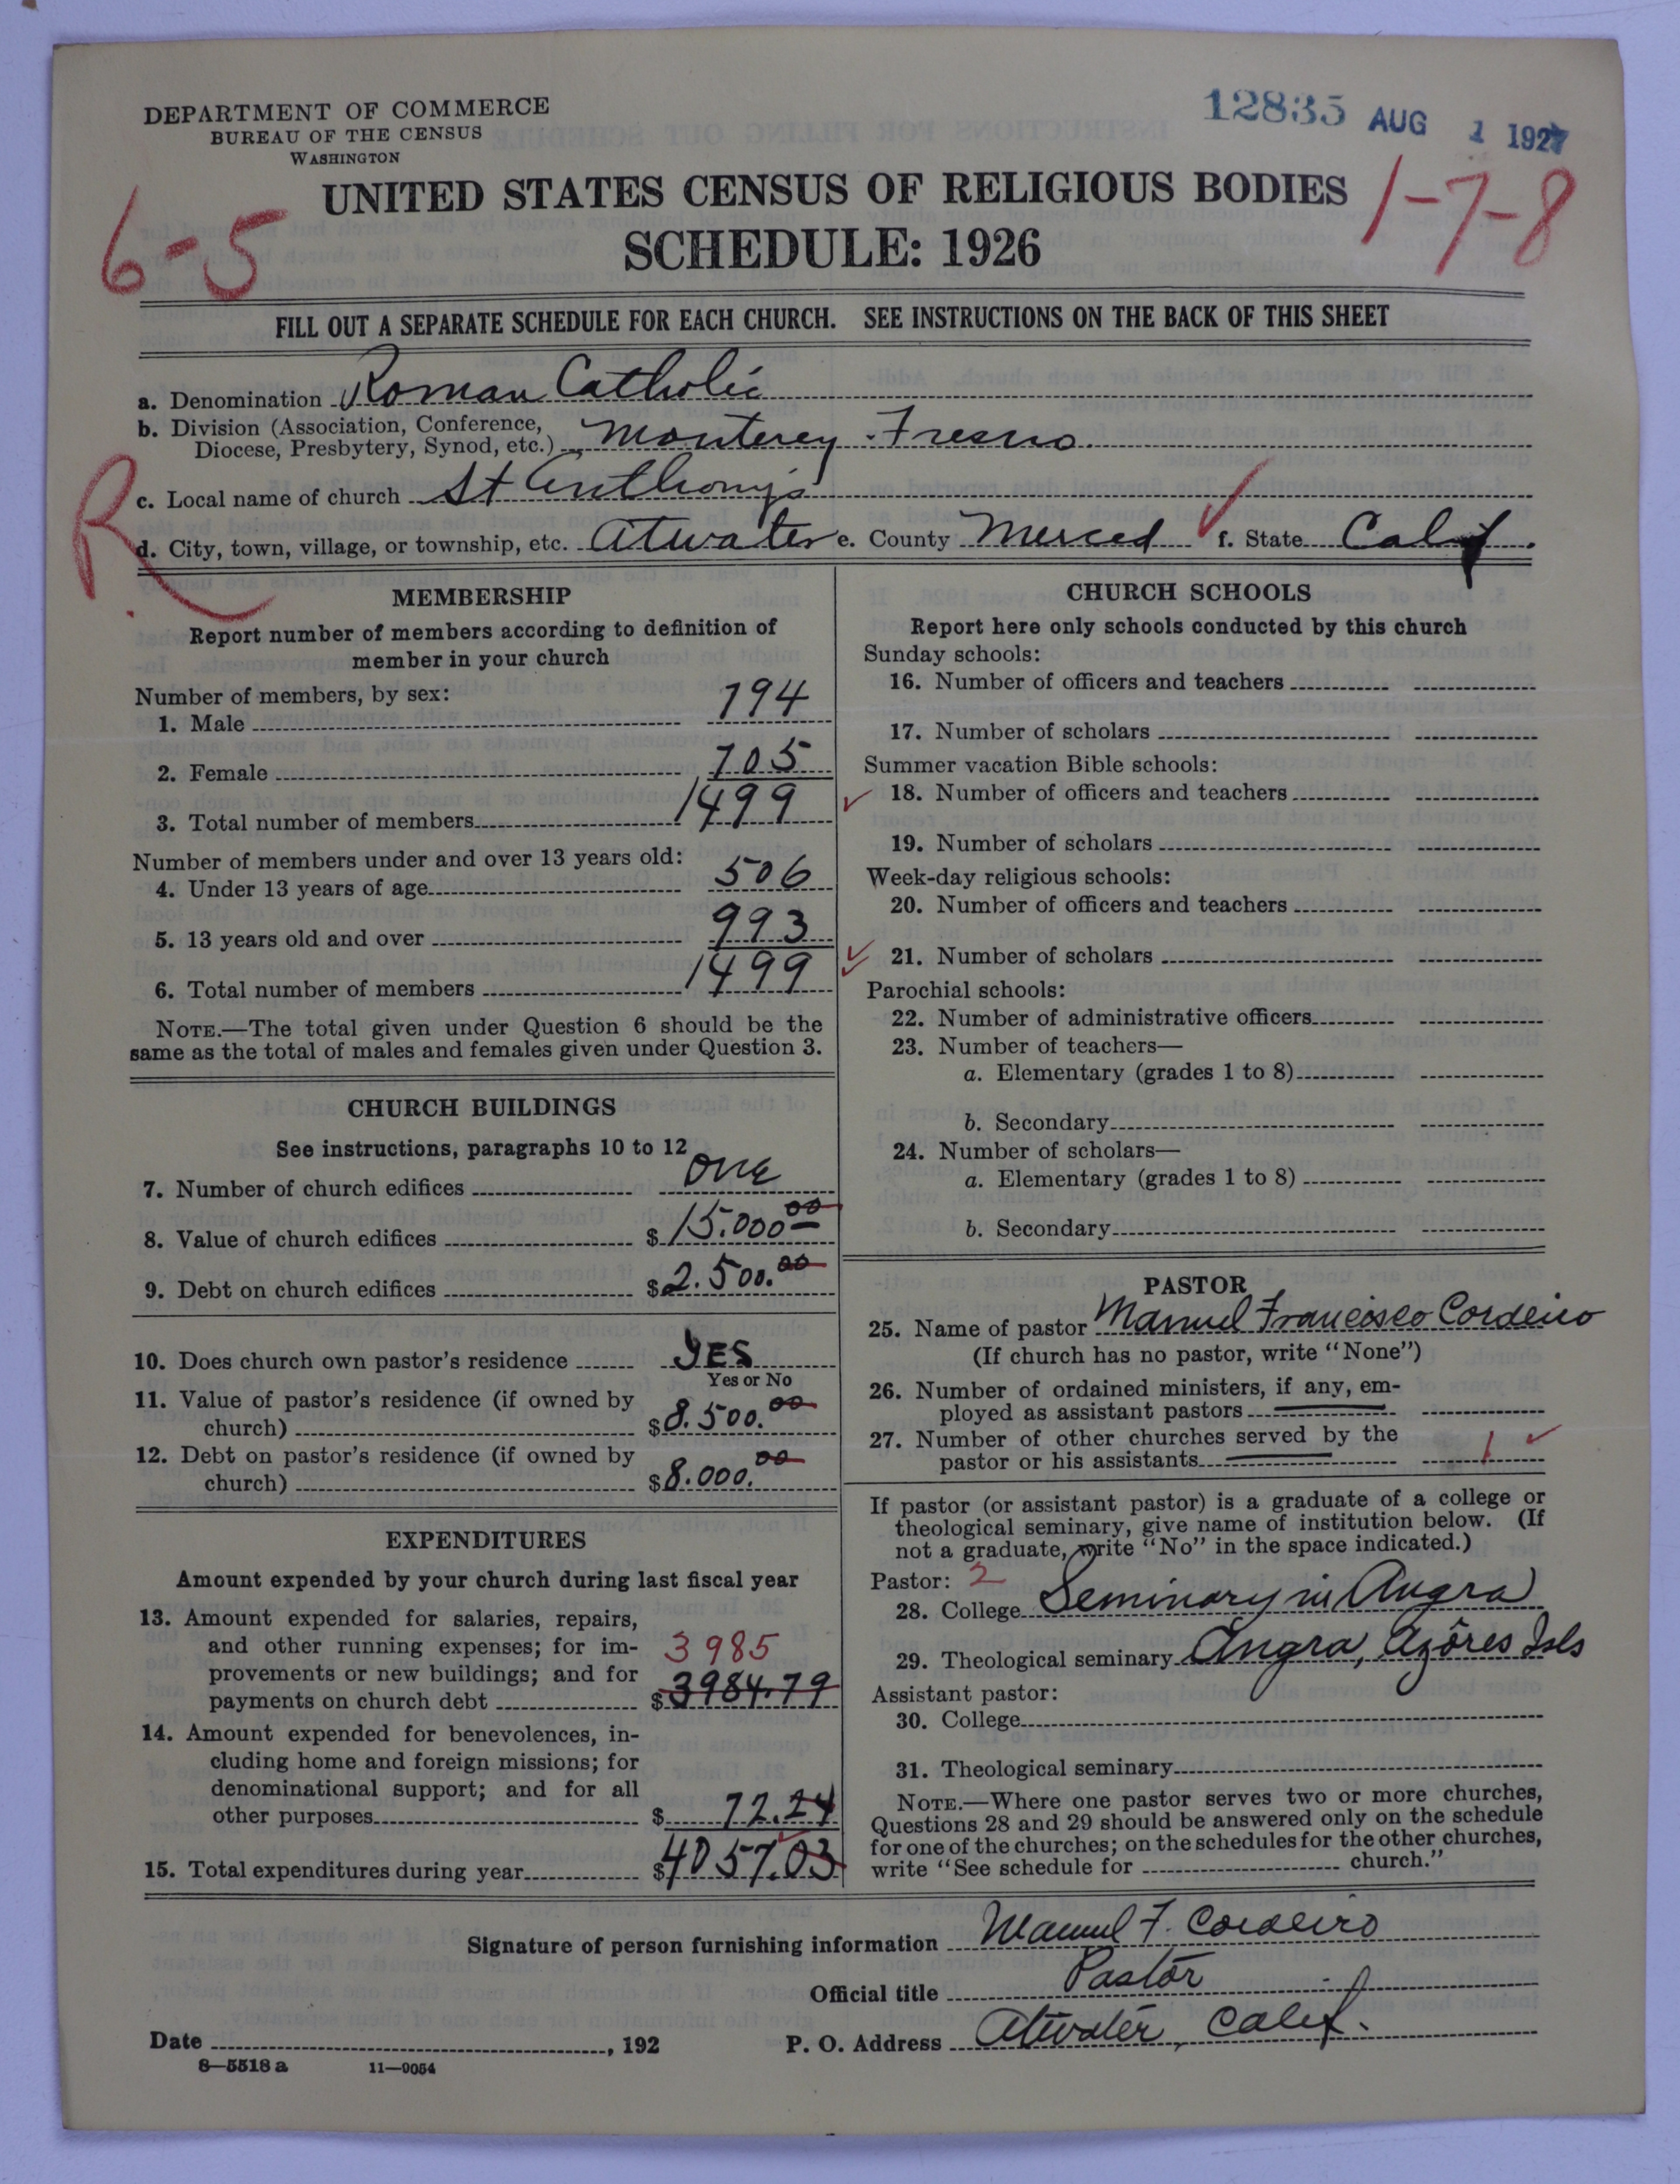 DEPARTMENT OF COMMERCE
BUREAU OF THE CENSUS
WASHINGTON
12835 AUG 1 1927
UNITED STATES CENSUS OF RELIGIOUS BODIES
SCHEDULE: 1926
6-5
1-7-8
FILL OUT A SEPARATE SCHEDULE FOR EACH CHURCH. SEE INSTRUCTIONS ON THE BACK OF THIS SHEET
a. Denomination Roman Catholic
b. Division (Association, Conference,
Diocese, Presbytery, Synod, etc.) Monterey-Fresno
R
c. Local name of church St Anthony's
d. City, town, village, or township, etc. Atwater e. County Merced f. State Calif.
MEMBERSHIP
Report number of members according to definition of
member in your church
Number of members, by sex:
1. Male 794
2. Female 705
3. Total number of members 1499
Number of members under and over 13 years old:
4. Under 13 years of age 506
5. 13 years old and over 993
6. Total number of members 1499
NOTE.—The total given under Question 6 should be the
same as the total of males and females given under Question 3.
CHURCH BUILDINGS
See instructions, paragraphs 10 to 12
7. Number of church edifices one
8. Value of church edifices $15.000.00
9. Debt on church edifices $2.500.00
10. Does church own pastor's residence YES
Yes or No
11. Value of pastor's residence (if owned by
church) $8.500.00
12. Debt on pastor's residence (if owned by
church) $8.000.00
EXPENDITURES
Amount expended by your church during last fiscal year
13. Amount expended for salaries, repairs,
and other running expenses; for im-
provements or new buildings; and for 3985
payments on church debt $3984.79
14. Amount expended for benevolences, in-
cluding home and foreign missions; for
denominational support; and for all
other purposes $72.24
15. Total expenditures during year $4057.03
CHURCH SCHOOLS
Report here only schools conducted by this church
Sunday schools:
16. Number of officers and teachers
17. Number of scholars
Summer vacation Bible schools:
18. Number of officers and teachers
19. Number of scholars
Week-day religious schools:
20. Number of officers and teachers
21. Number of scholars
Parochial schools:
22. Number of administrative officers
23. Number of teachers—
a. Elementary (grades 1 to 8)
b. Secondary
24. Number of scholars—
a. Elementary (grades 1 to 8)
b. Secondary
PASTOR
25. Name of pastor Manuel Francisco Cordeiro
(If church has no pastor, write "None")
26. Number of ordained ministers, if any, em-
ployed as assistant pastors
27. Number of other churches served by the
pastor or his assistants 1
If pastor (or assistant pastor) is a graduate of a college or
theological seminary, give name of institution below. (If
not a graduate, write "No" in the space indicated.)
Pastor: 2
28. College Seminary in Angra
29. Theological seminary Angra, Azôres Isls
Assistant pastor:
30. College
31. Theological seminary
NOTE.—Where one pastor serves two or more churches,
Questions 28 and 29 should be answered only on the schedule
for one of the churches; on the schedules for the other churches,
write "See schedule for church."
Signature of person furnishing information Manuel F. Cordeiro
Official title Pastor
Date , 192 P. O. Address Atwater, Calif.
8—5518a 11—9054